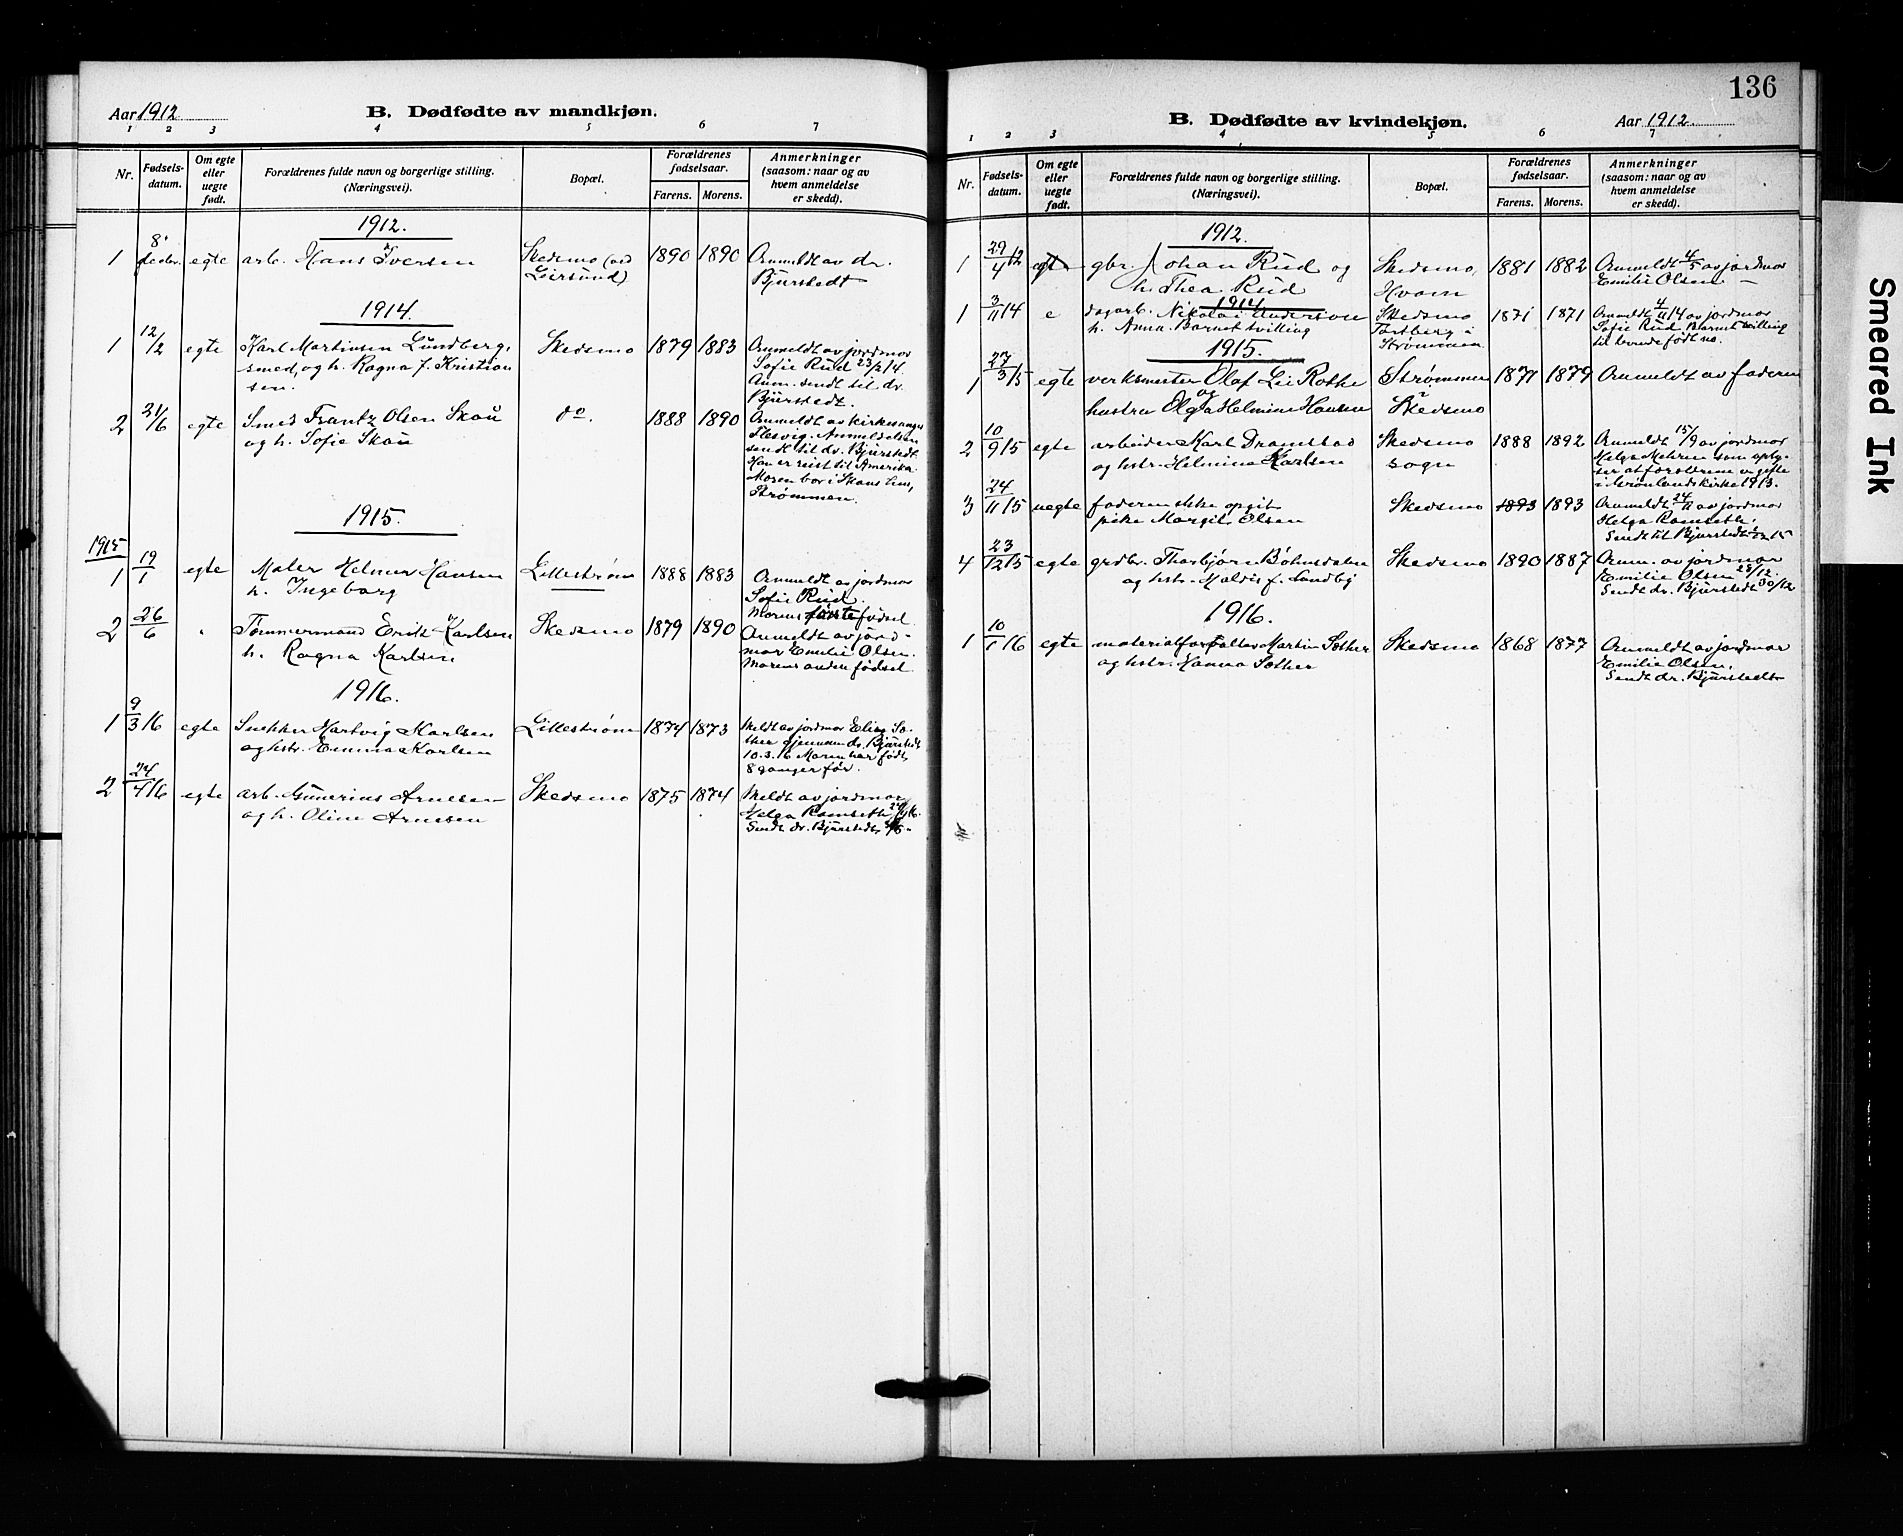 136
Aar 1912
B. Dødfødte av mandkjøn.
1 2 3 4 5 6 7
Nr.
Fødsels-
datum.
Om egte
eller
uegte
født.
Forældrenes fulde navn og borgerlige stilling.
(Næringsvei).
Bopæl.
Forældrenes
fødselsaar.
Farens. Morens.
Anmerkninger
(saasom: naar og av
hvem anmeldelse
er skedd).
1912.
1 8' febr. egte arb. Hans Iversen Skedsmo (ved 1890 1890 Anmeldt av dr.
Leirsund) Bjurstedt
1914.
1 12/2 egte Karl Martinsen Lundberg, Skedsmo 1879 1883 Anmeldt av jordmor
smed, og h. Ragna f. Kristian Sofie Rud 23/2 14.
sen. Anm. sendt til dr.
Bjurstedt.
2 21/6 egte Smed Frantz Olsen Skau do. 1888 1890 Anmeldt av kirkesanger
og h. Sofie Skau Slesvig. Anmeldelsen
sendt til dr. Bjurstedt.
Han er reist til Amerika
Moren bor i Skaus hus,
Strømmen.
1915.
1915
1 19/1 egte Maler Helmer Hansen Lillestrøm 1888 1883 Anmeldt av jordmor
h. Ingeborg Sofie Rud.
Morens første fødsel
2 26/6 " Tømmermand Erik Karlsen Skedsmo 1879 1890 Anmeldt av jord-
h. Ragna Karlsen mor Emilie Olsen.
Morens anden fødsel
1916.
1 9/3 16 egte Snekker Hartvig Karlsen Lillestrøm 1874 1873 Meldt av jordmor Elise Sæ-
og hstr. Emma Karlsen ther gjennem dr. Bjurstedt
10.3.16 Moren har født
8 ganger før.
2 24/4 16 egte arb. Gunerius Arnesen Skedsmo 1875 1874 Meldt av jordmor
og h. Oline Arnesen Helga Ramseth
Sendt dr. Bjurstedt
B. Dødfødte av kvindekjøn.
Aar 1912
1 2 3 4 5 6 7
Nr.
Fødsels-
datum.
Om egte
eller
uegte
født.
Forældrenes fulde navn og borgerlige stilling.
(Næringsvei).
Bopæl.
Forældrenes
fødselsaar.
Farens. Morens.
Anmerkninger
(saasom: naar og av
hvem anmeldelse
er skedd).
1912.
1 29/4 12 egte gbr. Johan Rud og Skedsmo, 1881 1882 Anmeldt 4/5 av jordmor
h. Thea Rud Hvam Emilie Olsen
1914
1 3/11 14 e dagarb. Nikolai Andersen Skedsmo 1871 1871 Anmeldt 4/11 14 av jordmor
h. Anna. Barnet tvilling Torsberg i Sofie Rud. Barnet tvilling
Strømmen til levende født no.
1915.
1 27/3 15 egte verksmester Olaf Lie Rothe Strømmen 1871 1879 Anmeldt av faderen
og
hustru Olga Helmine Hansen Skedsmo
2 10/9 15 egte arbeider Karl Dramstad Skedsmo 1888 1892 Anmeldt 15/9 av jordmor
og hstr. Helmine Karlsen sogn Helga Mehren som oply-
ser at forældrene er gifte
i Grønlands kirke 1913.
3 24/11 15 uegte faderen ikke opgit Skedsmo 1893 1893 Anmeldt 24/11 av jordmor
pike Margit Olsen Helga Ramseth.
Sendt til Bjurstedt
4 23/12 15 egte grdbr. Thorbjørn Bøhmsdalen Skedsmo 1890 1887 Anm. av jordmor
og hstr. Maldis f. Sundby Emilie Olsen 28/12.
Sendt dr. Bjurstedt 30/12
1916.
1 10/1 16 egte materialforvalter Martin Sæther Skedsmo 1868 1877 Anmeldt av jordmor
og hstr. Hanna Sæther Emilie Olsen.
Sendt dr. Bjurstedt
Smeared Ink